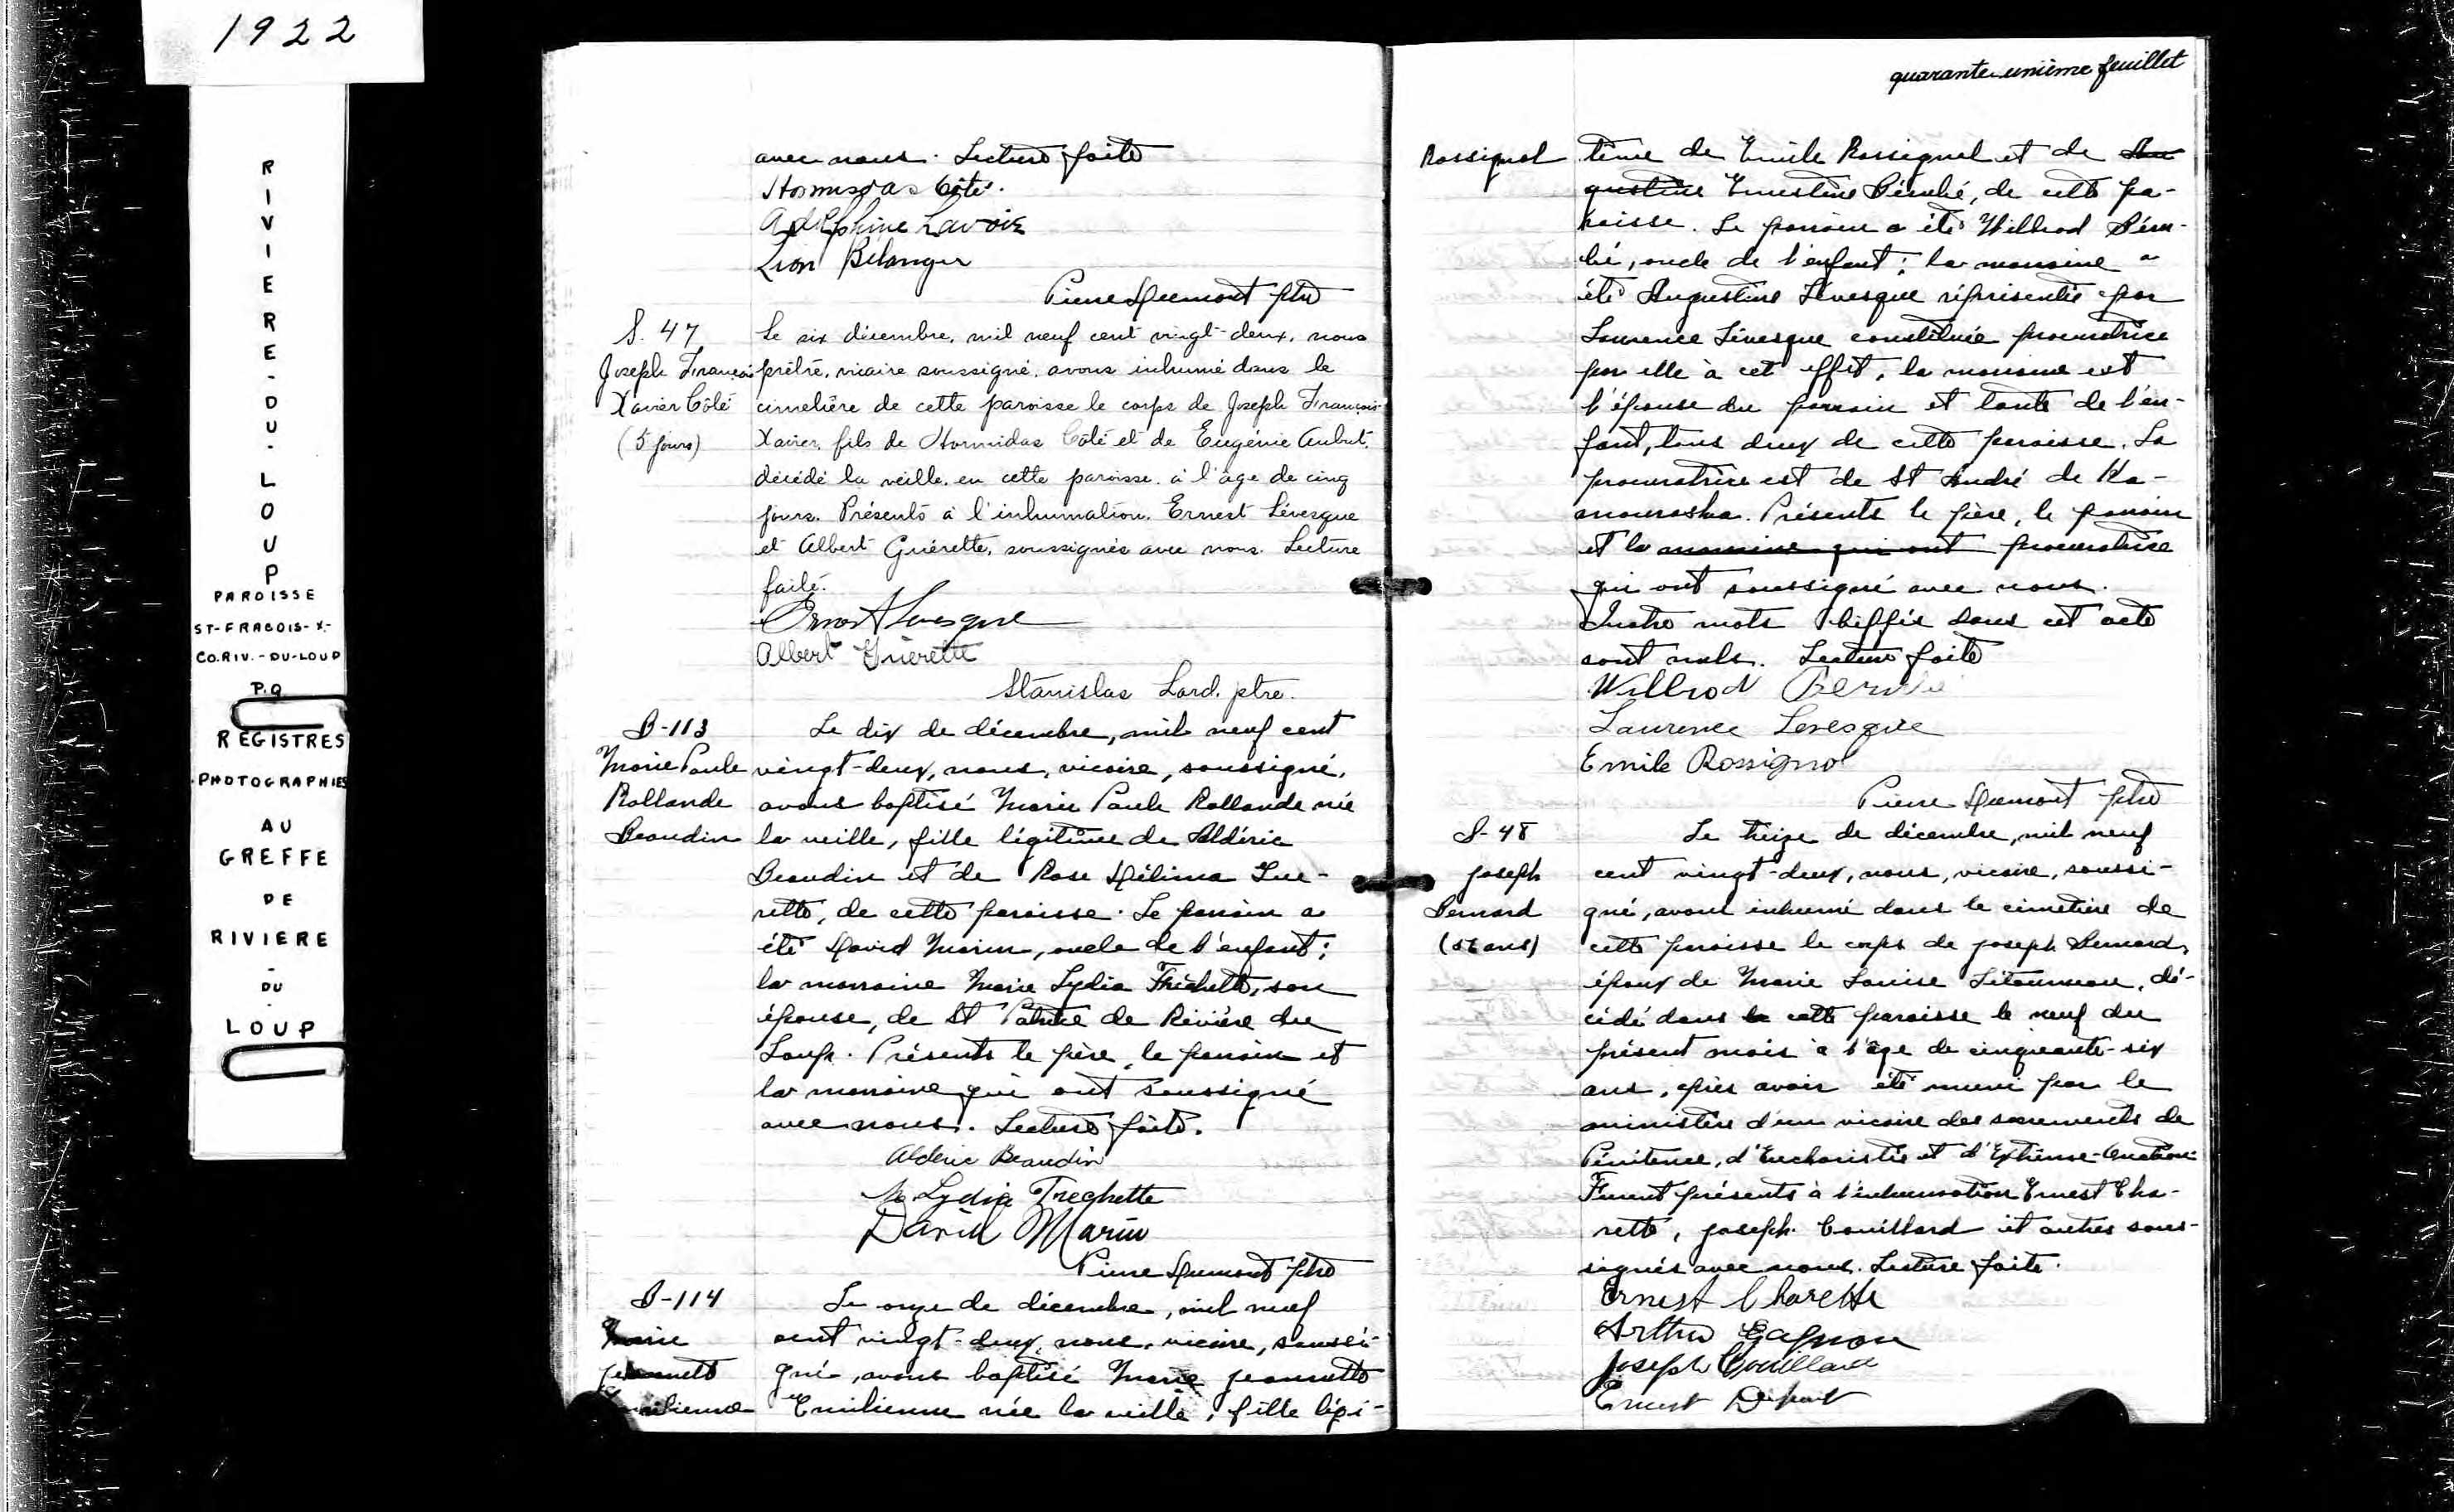 1922
RIVIERE-DU-LOUP
PAROISSE
ST-FRABOIS-X-
CO.RIV.-DU-LOUP
P.Q
REGISTRES
PHOTOGRAPHIES
AU
GREFFE
DE
RIVIERE
-
DU
-
LOUP
avec nous. Lecture faite
Hormisdas Côté.
Adelphine Lavoie
Léon Bélanger
Pierre Dumont ptre
S. 47
Joseph François
Xavier Côté
(5 jours)
Le six décembre, mil neuf cent vingt-deux, nous
prêtre, vicaire soussigné, avons inhumé dans le
cimetière de cette paroisse le corps de Joseph François-
Xavier, fils de Hormidas Côté et de Eugénie Aubut,
décédé la veille, en cette paroisse, à l'âge de cinq
jours. Présents à l'inhumation, Ernest Lévesque
et Albert Guérette, soussignés avec nous. Lecture
faite.
Ernest Levesque
Albert Guérette
Stanislas Lard. ptre.
B-113
Marie Paule
Rollande
Beaudin
Le dix de décembre, mil neuf cent
vingt-deux, nous, vicaire, soussigné,
avons baptisé Marie Paule Rollande née
la veille, fille légitime de Aldéric
Beaudin et de Rose Délima
rette, de cette paroisse. Le parrain a
été David Morin, oncle de l'enfant;
la marraine Marie Lydia Fréchette, son
épouse, de St Patrice de Rivière du
Loup. Présents le père, le parrain et
la marraine qui ont soussigné
avec nous. Lecture faite.
Alderic Beaudin
M Lydia Freghette
David Marin
Pierre Dumont ptre
B-114
Marie
Jeannette
Emilienne
Le onze de décembre, mil neuf
cent vingt-deux, nous, vicaire, soussi-
gné, avons baptisé Marie Jeannette
Emilienne née la veille, fille légi-
quarante-unième feuillet
Rossignol
time de Emile Rossignol et de Au
gustine Ernestine Bérubé, de cette pa-
roisse. Le parrain a été Willrod Béru-
bé, oncle de l'enfant; la marraine a
été Augustine Lévesque réprésentée par
Laurence Lévesque constituée procuratrice
par elle à cet effet, la marraine est
l'épouse du parrain et tante de l'en-
fant, tous deux de cette paroisse. La
procuratrice est de St André de Ka-
mouraska. Présents le père, le parrain
et la marraine qui ont procuratrice
qui ont soussigné avec nous.
Quatre mots biffés dans cet acte
sont nuls. Lecture faite
Willrod Berube
Laurence Levesque
Emile Rossignol
Pierre Dumont ptre
S-48
Joseph
Bernard
(56 ans)
Le treize de décembre, mil neuf
cent vingt-deux, nous, vicaire, soussi-
gné, avons inhumé dans le cimetière de
cette paroisse le corps de Joseph Bernard,
époux de Marie Louise Létourneau, dé-
cédé dans la cette paroisse le neuf du
présent mois à l'âge de cinquante-six
ans, après avoir été muni par le
ministère d'un vicaire des sacrements de
Pénitence, d'Eucharistie et d'Extrême-Onction.
Furent présents à l'inhumation Ernest Cha-
rette, Joseph Couillard et autres sous-
signés avec nous. Lecture faite.
Ernest Charette
Arthur Gagnon
Joseph Couillard
Ernest